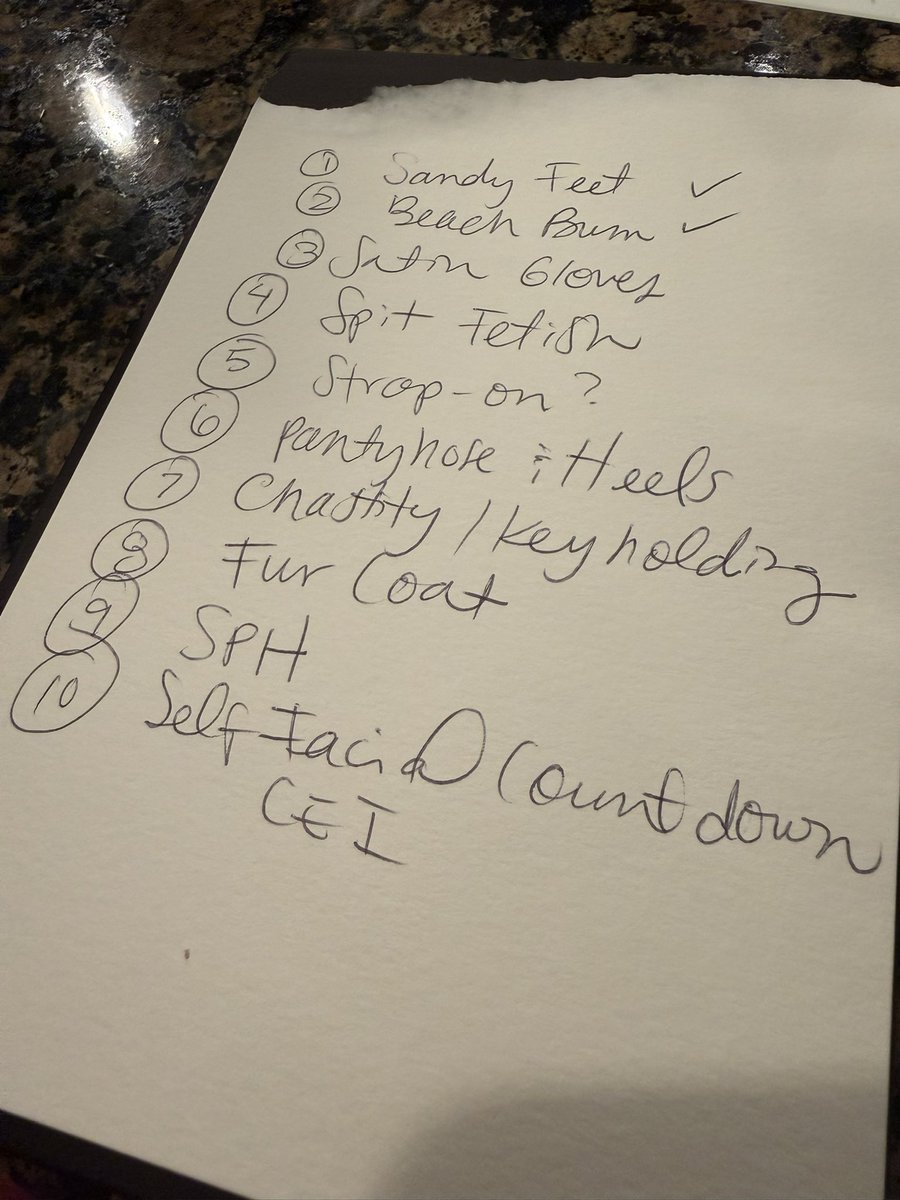 ① Sandy Feet ✓
② Beach Bum ✓
③ Satin Gloves
④ Spit Fetish
⑤ Strap-on?
⑥ Pantyhose & Heels
⑦ Chastity / Key holding
⑧ Fur Coat
⑨ SPH
⑩ Self-Facial Countdown
CEI